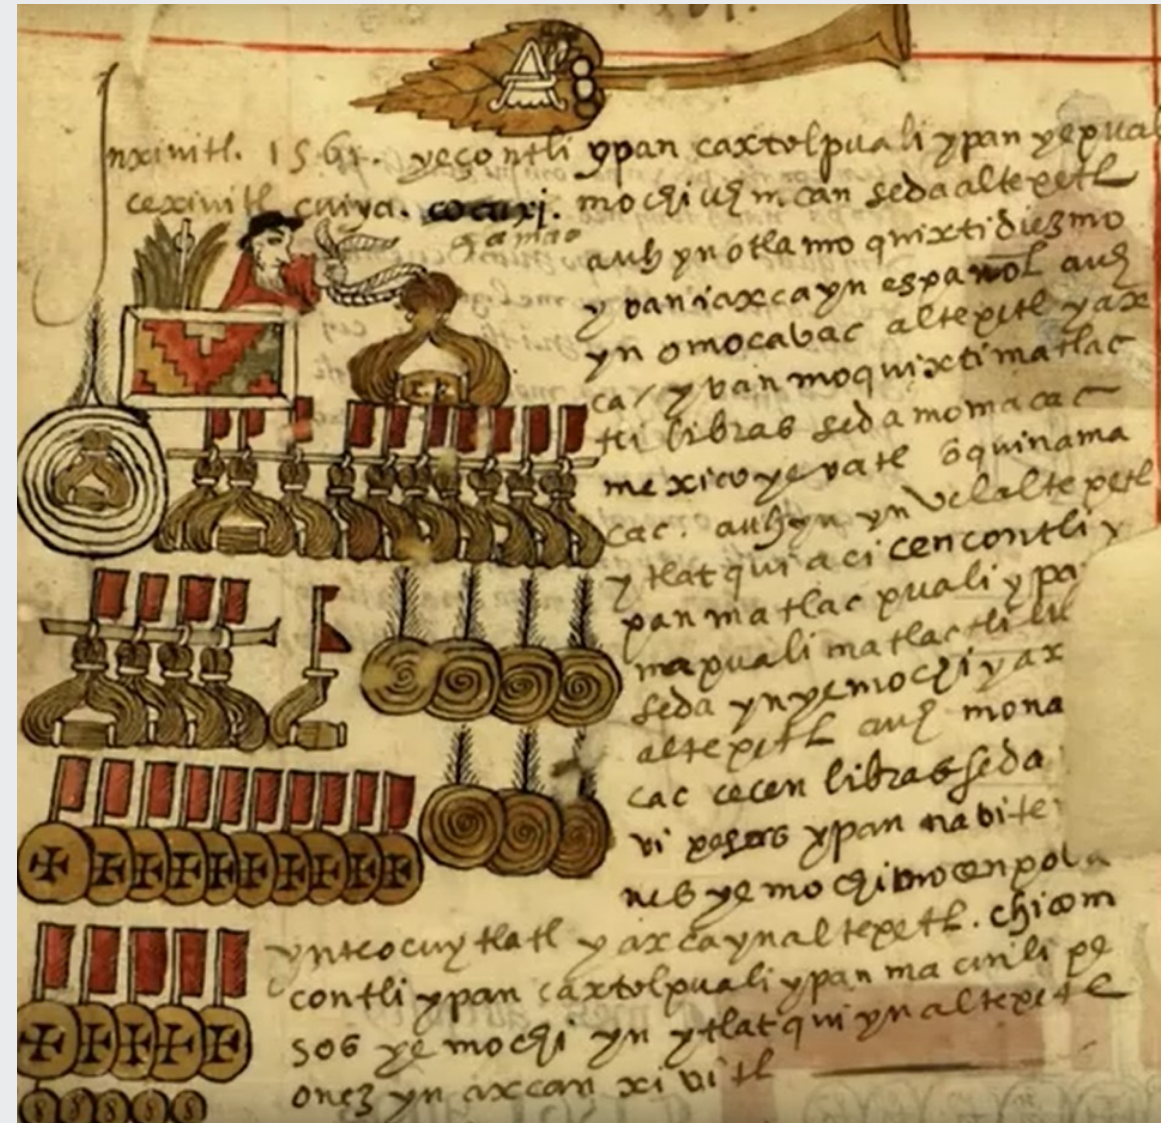 nxiuitl. 1561. yecontli ypan caxtolpuali ypan yepual
cexiuitl cuiya. mochiuh mcan seda altepetl
auh yn otlamo quixti diezmo
y van iaxca yn español auh
yn omocavac altepetl yax
ca / y van moquixti matlac
tli libras seda momacac
mexico ye vatl oquinama
cac. auh yn yn vel altepetl
y tlatqui aci cencontli y
pan matlac puali y pa
mapuali matlactli li
seda yn ye mochi yax
altepetl auh mona
cac cecen libras seda
vi pesos ypan nabi to
nes ye mochi mocenpoва
yn teocuytlatl yaxca yn altepetl. chicom
contli ypan caxtolpuali ypan macuili pe
sos ye mochi yn ytlatqui yn altepetl
onez yn axcan xivitl